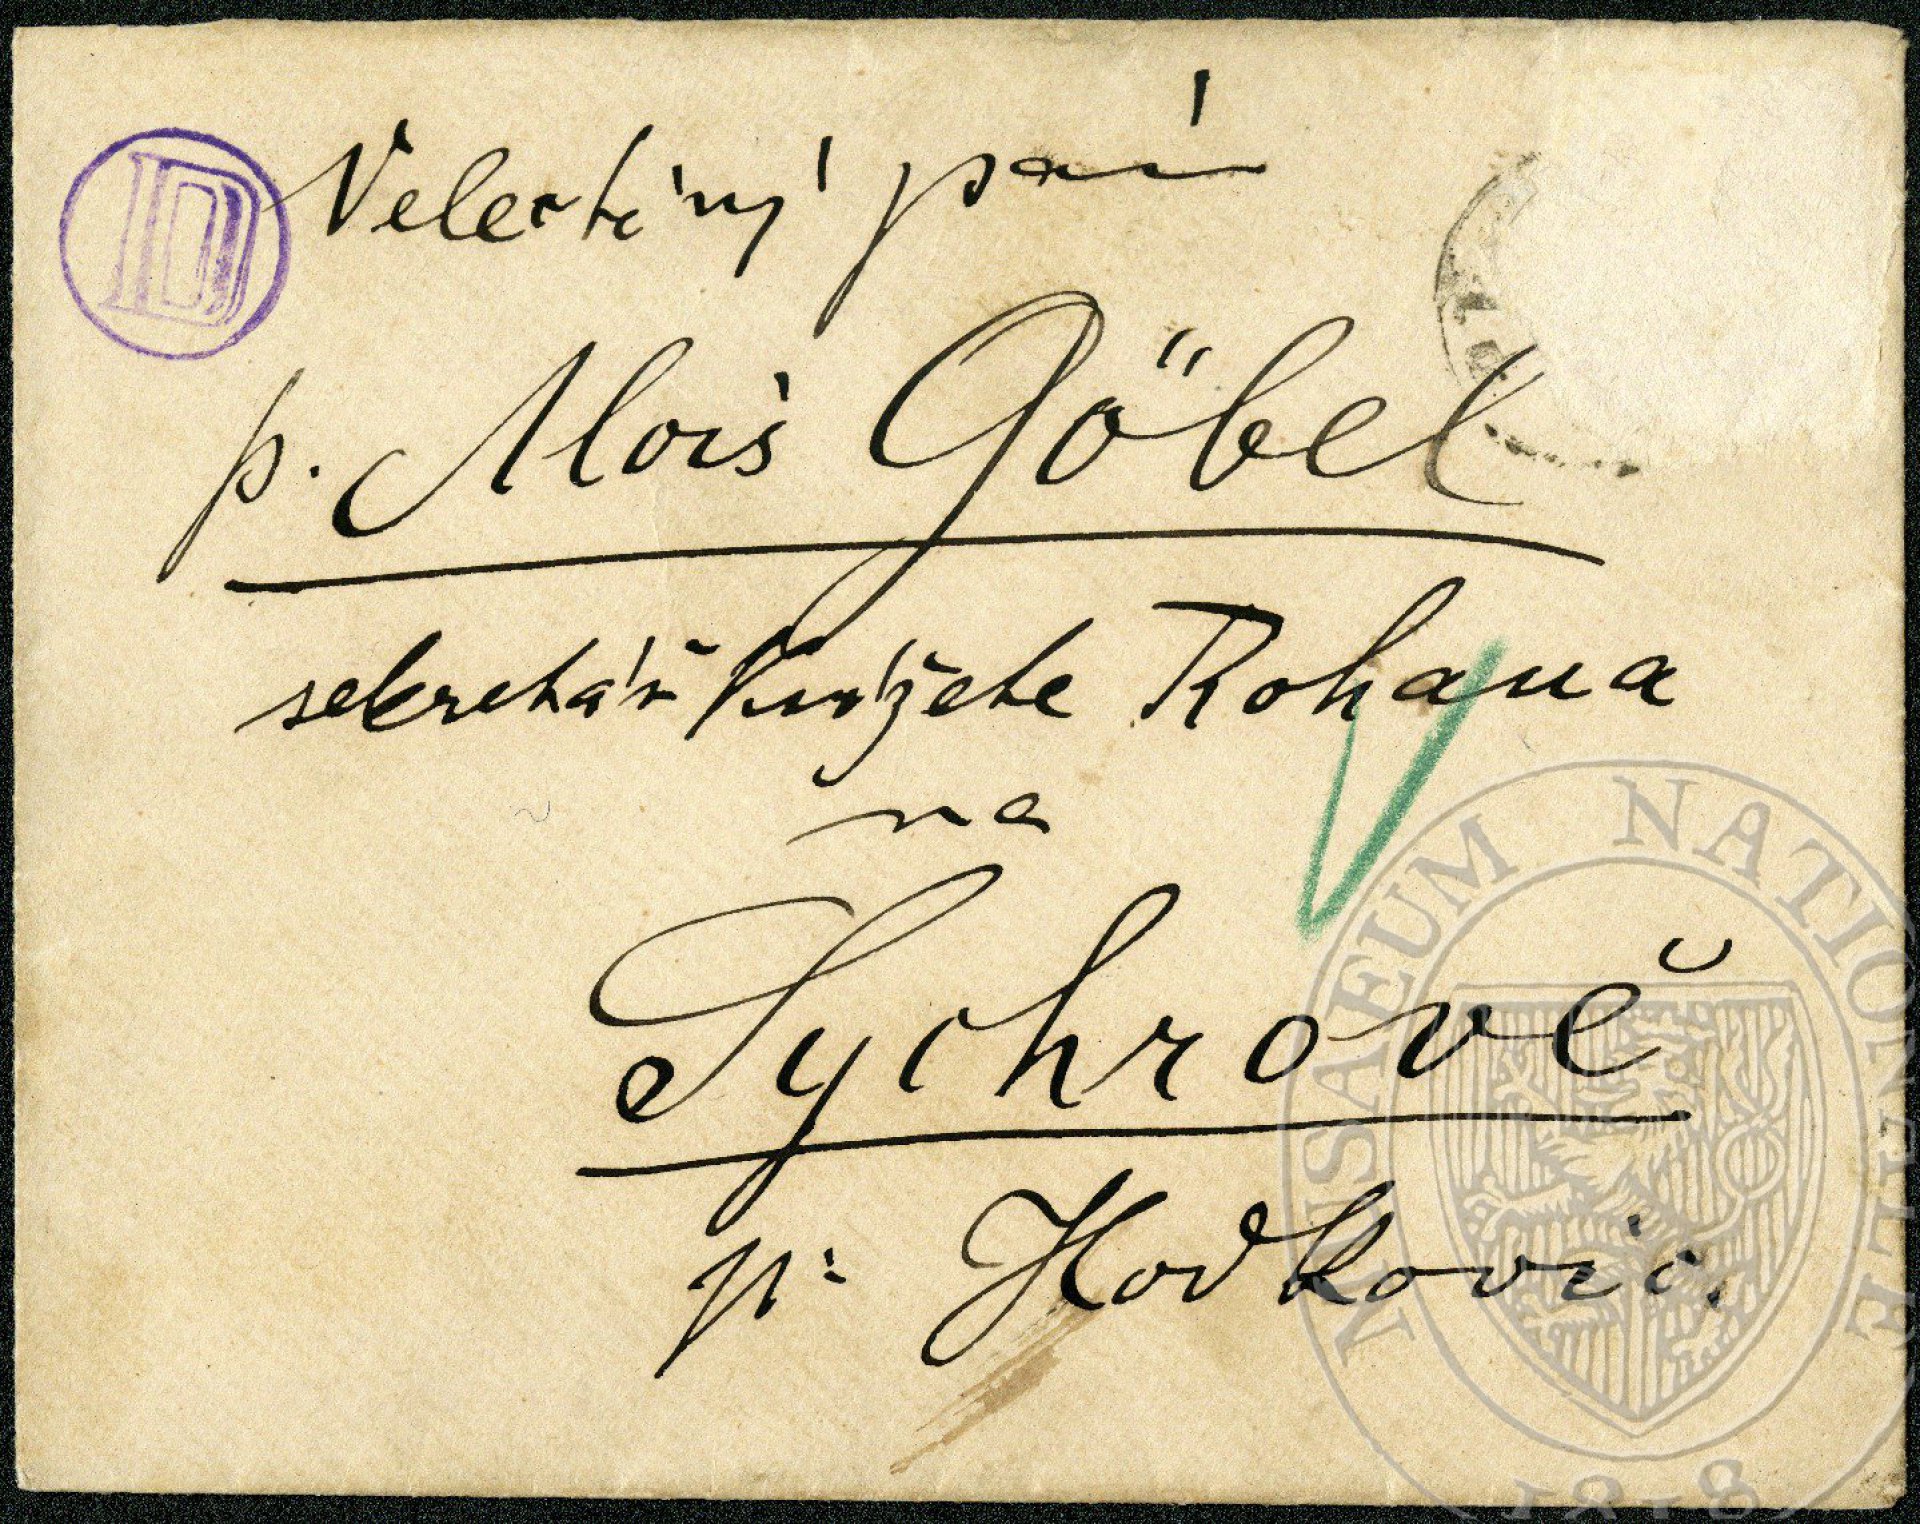 D
Velectěný pán
p. Alois Göbel
sekretář knížete Rohana
na
Sychrově
p: Hodkovic.
MUSAEUM NATIONALE
1818